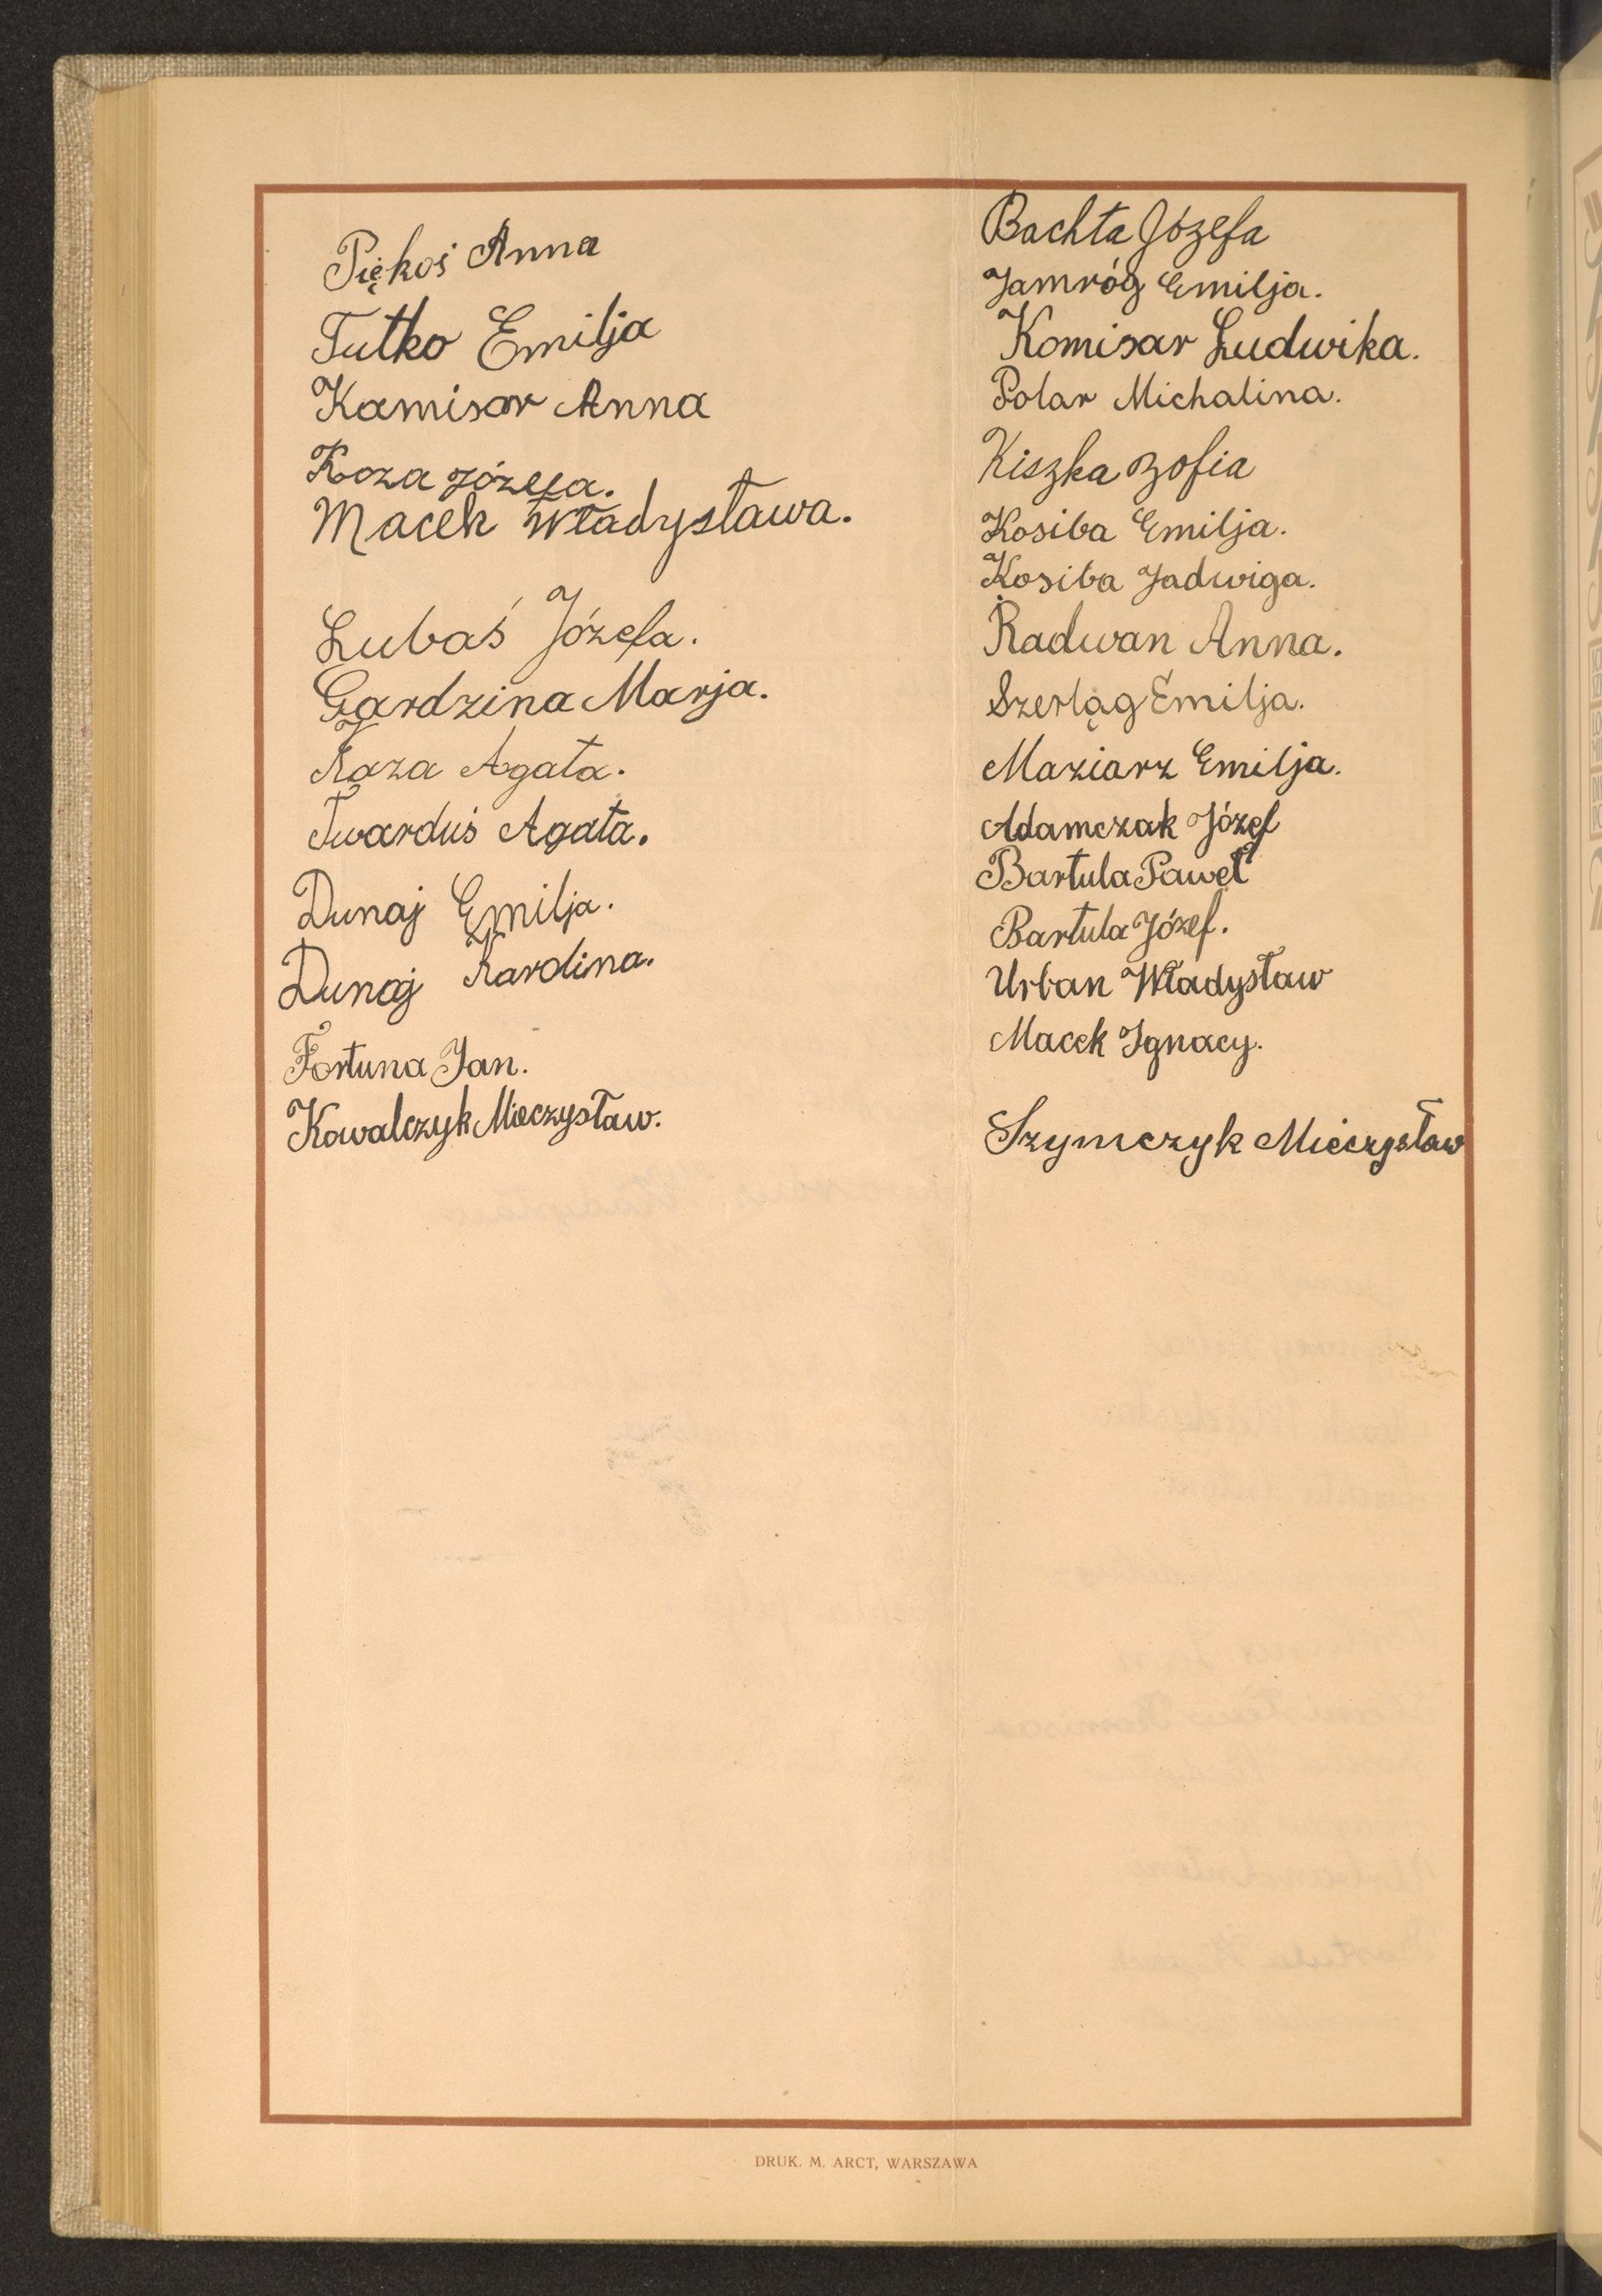 Piękoś Anna
Tutko Emilja
Kamisar Anna
Koza Józefa.
Macek Władysława.
Lubaś Józefa.
Gardzina Marja.
Kaza Agata.
Twarduś Agata.
Dunaj Emilja.
Dunaj Karolina.
Fortuna Jan.
Kowalczyk Mieczysław.
Bachta Józefa
Jamróg Emilja.
Komisar Ludwika.
Polar Michalina.
Kiszka Zofia
Kosiba Emilja.
Kosiba Jadwiga.
Radwan Anna.
Szerląg Emilja.
Maziarz Emilja.
Adamczak Józef
Bartula Paweł
Bartula Józef.
Urban Władysław
Macek Ignacy.
Szymczyk Mieczysław
DRUK. M. ARCT, WARSZAWA